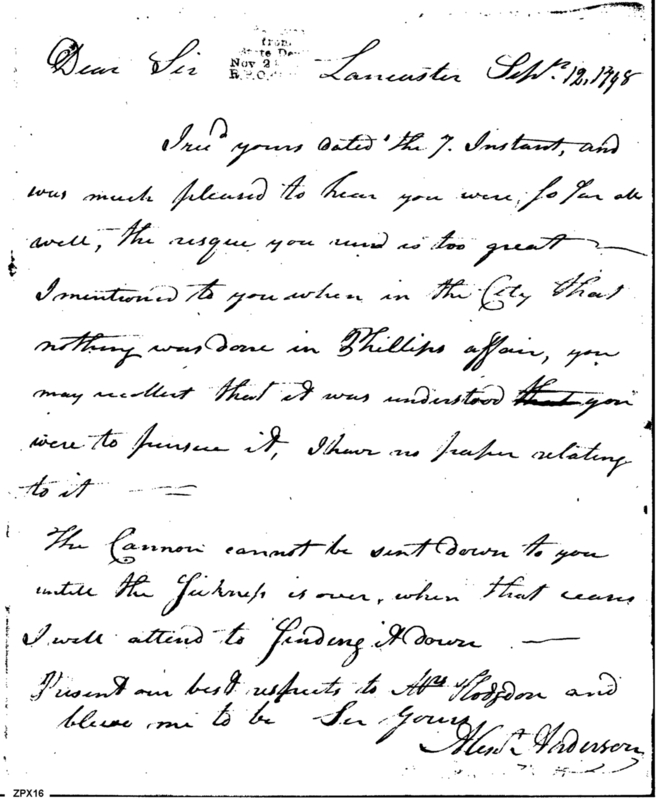 from
State De
Nov 2
R.P.O.
Dear Sir Lancaster Sepr. 12, 1798
I recd yours dated the 7. Instant, and
was much pleased to hear you were, so far all
well, the resque you rund is too great —
I mentioned to you when in the City that
nothing was done in Phillips affair, you
may recollect that it was understood that you
were to pursue it, I have no paper relating
to it —
The Cannon cannot be sent down to you
untill the Sickness is over, when that ceases
I will attend to sending it down —
Present our best respects to Mrs Hodgdon and
bleive me to be Sir yours
Alexr. Anderson
ZPX16